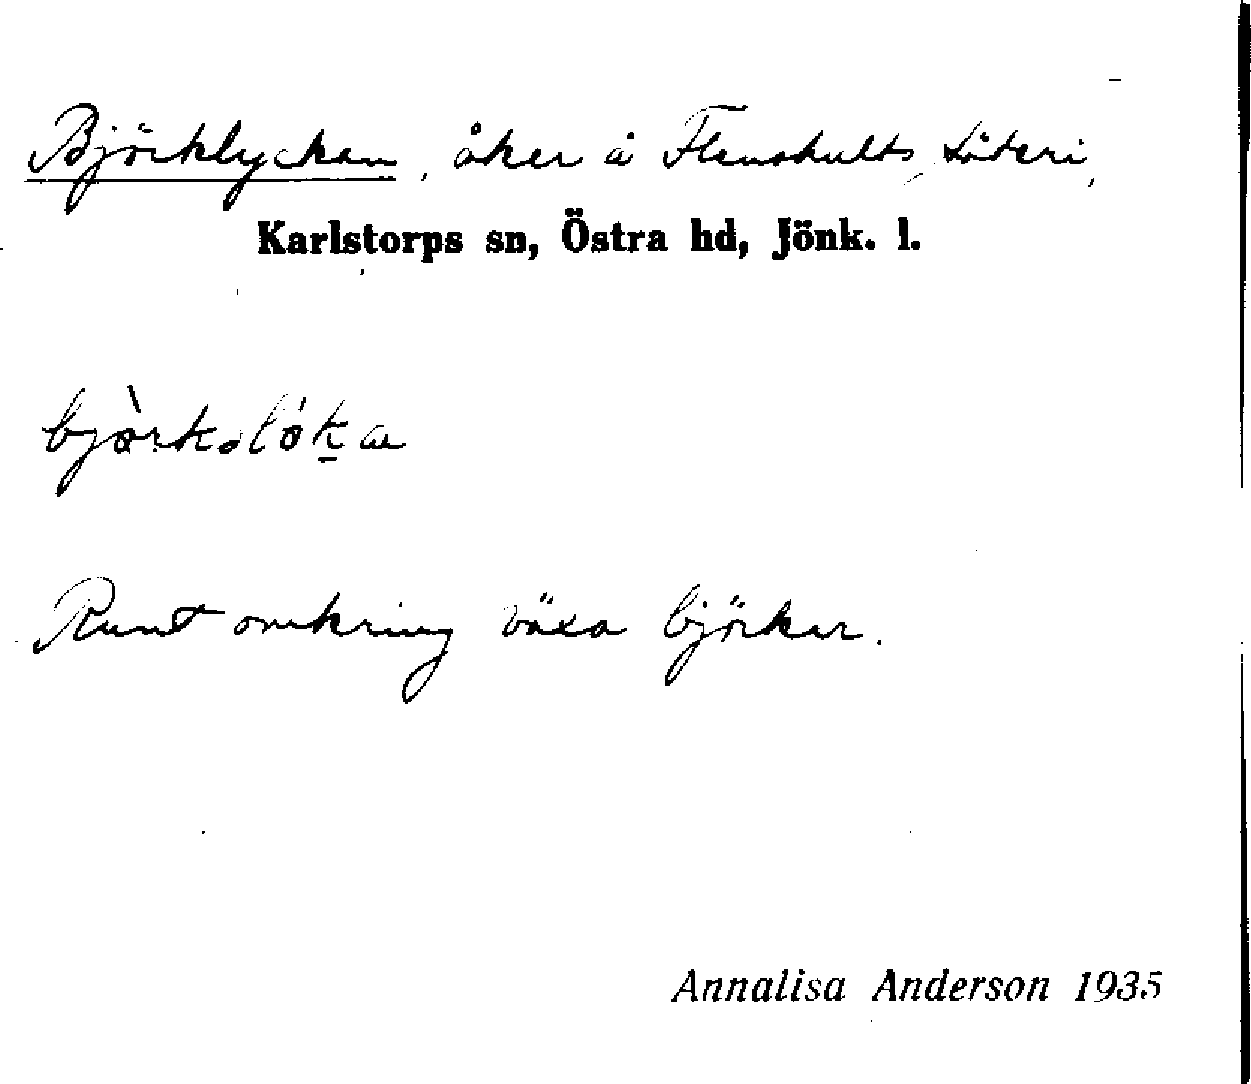 Björklyckan, åker å Flenshults säteri,
Karlstorps sn, Östra hd, Jönk. l.
bjòrkslók̲a
Runt omkring växa björkar.
Annalisa Anderson 1935